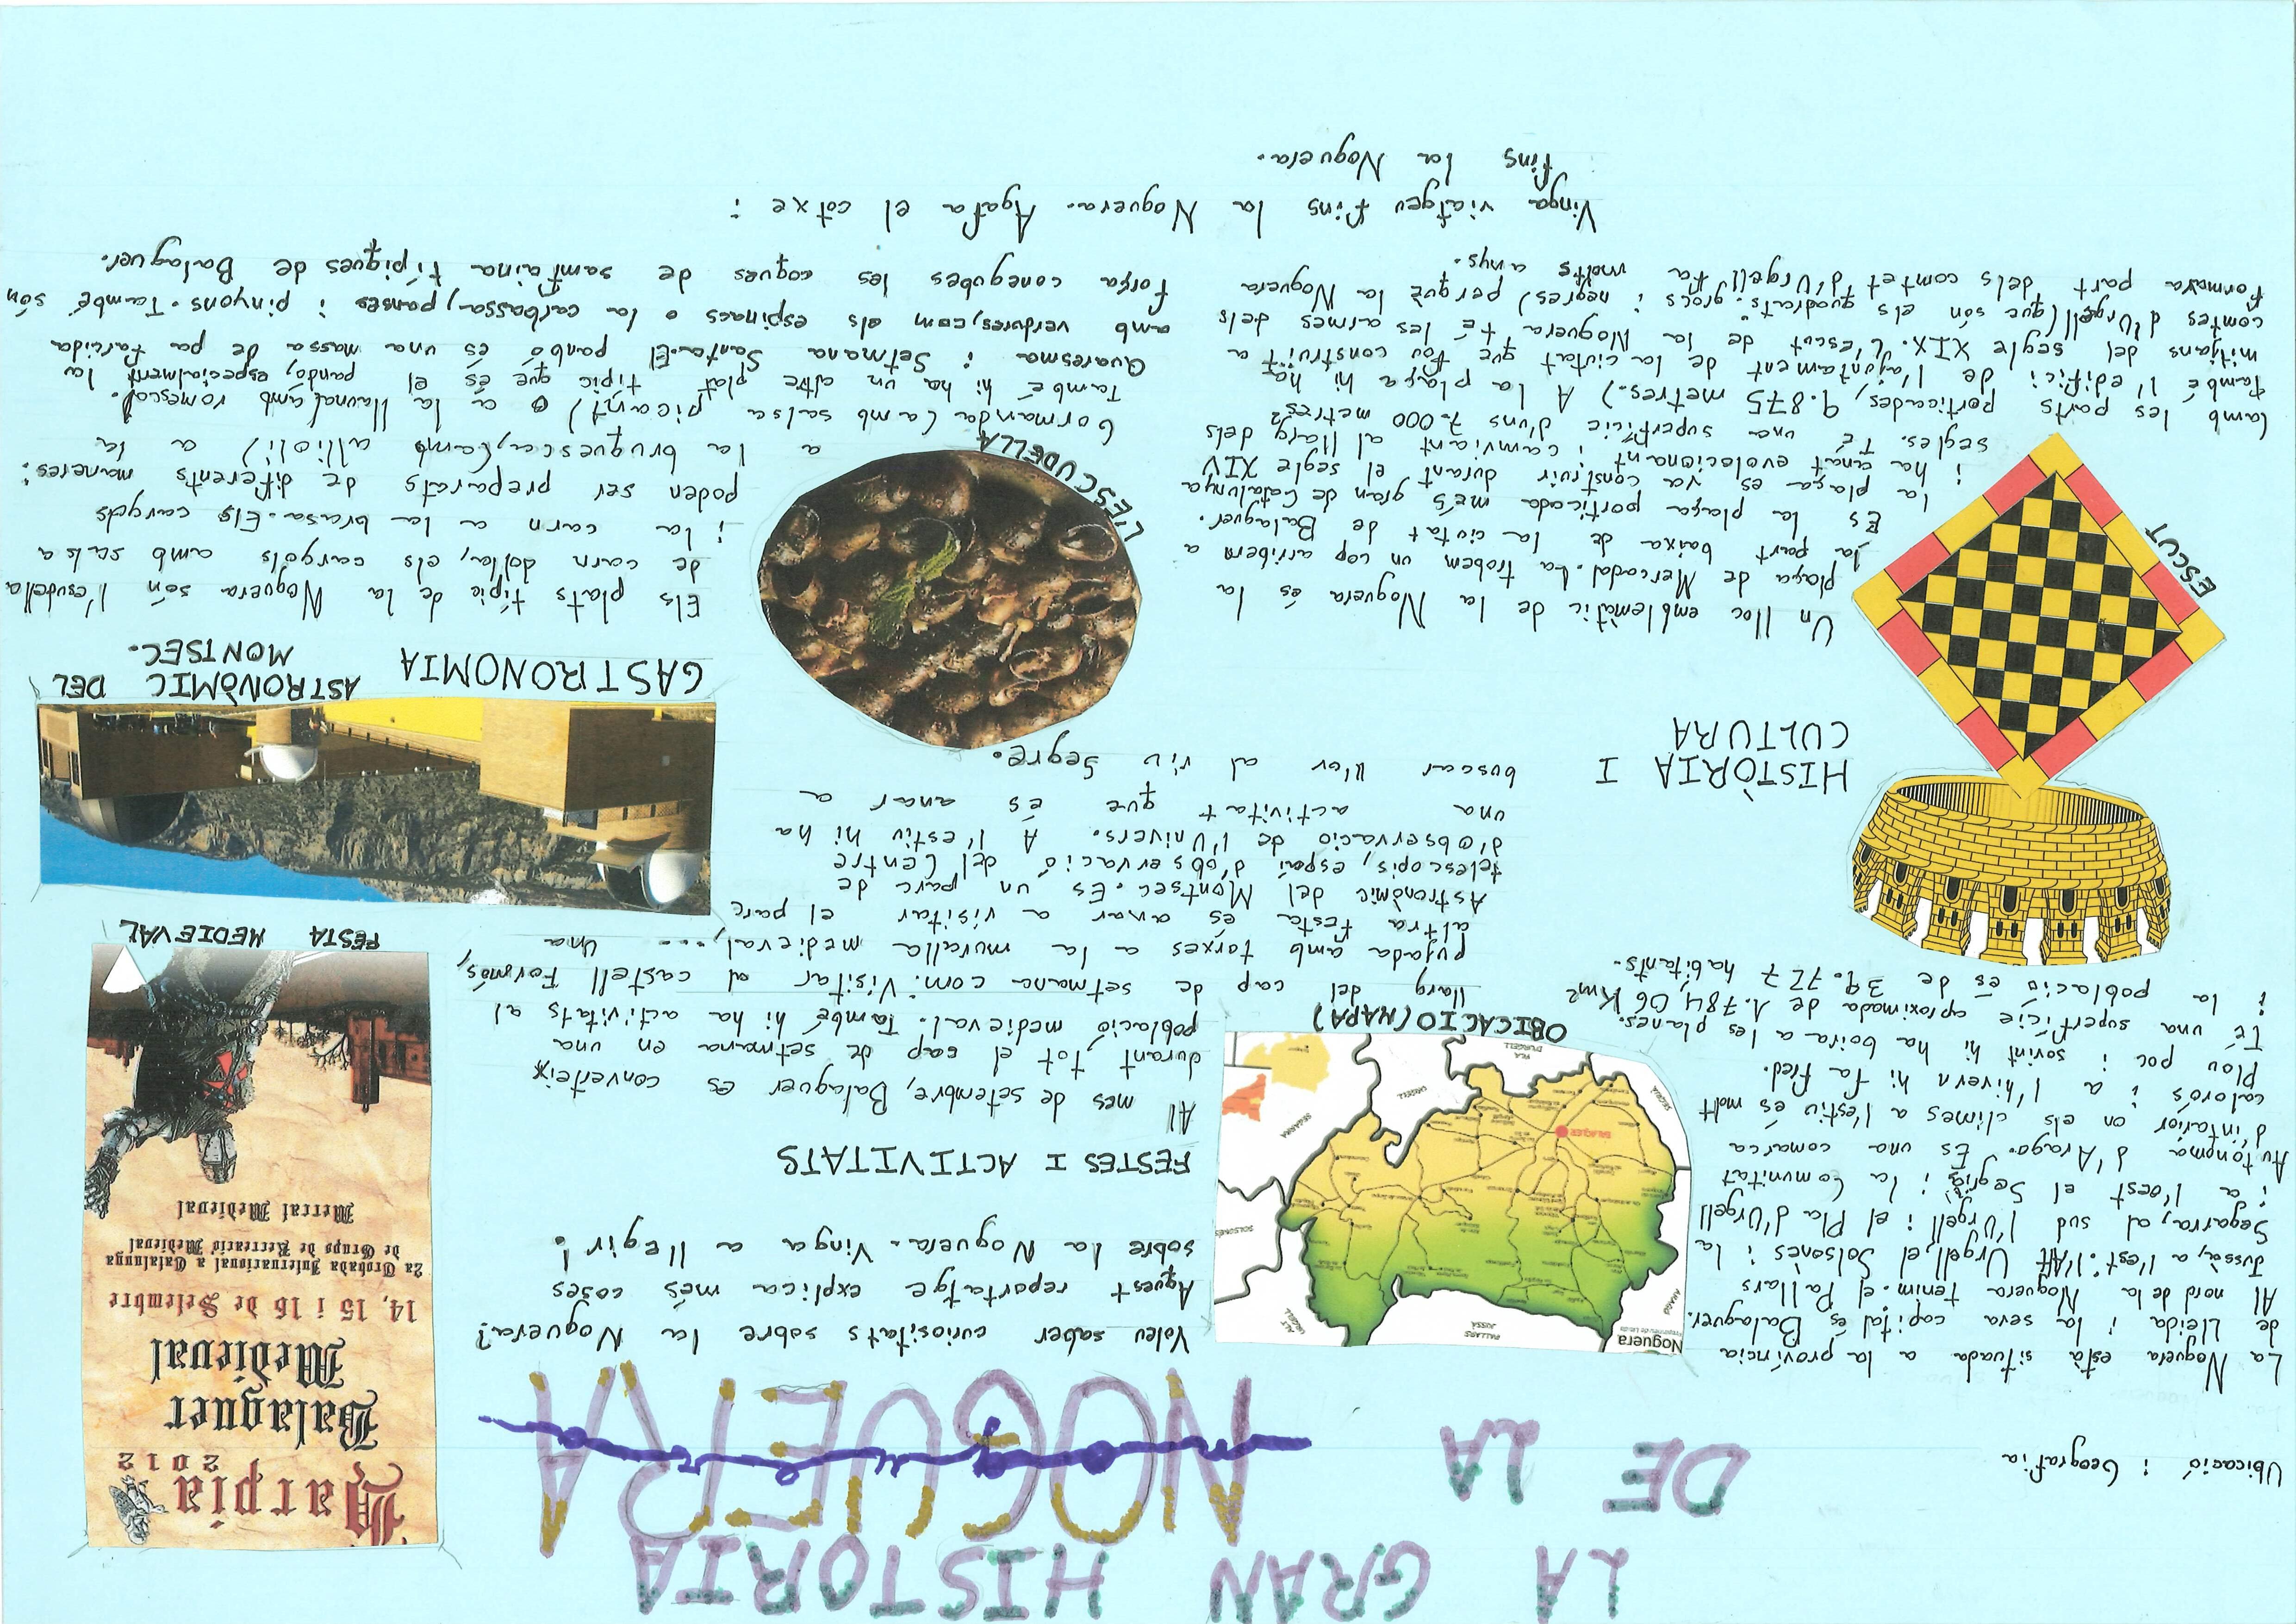 LA GRAN HISTORIA
DE LA NOGUERA
Ubicació i Geografia
La Noguera està situada a la província
de Lleida i la seva capital és Balaguer.
Al nord de la Noguera tenim el Pallars
Jussà, a l'est: l'Alt Urgell, el Solsonès i la
Segarra, al sud l'Urgell i el Pla d'Urgell
i a l'oest el Segrià i la Comunitat
Autònoma d'Aragó. És una comarca
d'intarior on els climes a l'estiu és molt
calorós i a l'hivern hi fa fred.
plou poc i sovint hi ha boira a les planes.
Té una superfície aproximada de 1.784,06 Km²
i la població és de 39.727 habitants.
Noguera
PALLARS JUSSÀ
ALT URGELL
ARAGÓ
SOLSONÈS
BALAGUER
SEGARRA
SEGRIÀ
URGELL
PLA D'URGELL
OBICACIÓ (MAPA)
Voleu saber curiositats sobre la Noguera?
Aquest reportatge explica més coses
sobre la Noguera. Vinga a llegir!
FESTES I ACTIVITATS
Al mes de setembre, Balaguer es converteix
durant tot el cap de setmana en una
població medieval. També hi ha activitats al
llarg del cap de setmana com: Visitar al castell Formós,
pujada amb torxes a la muralla medieval,... Una
altra festa és anar a visitar el parc
Astronòmic del Montsec. És un parc de
telescopis, espai d'observació del Centre
d'observació de l'Univers. A l'estiu hi ha
una activitat que és anar a
buscar l'or al riu Segre.
Harpia
2012
Balaguer
Medieval
14, 15 i 16 de Setembre
2a Trobada Internacional a Catalunya
de Grups de Recreació Medieval
Mercat Medieval
FESTA MEDIEVAL
ASTRONÒMIC DEL
MONTSEC.
HISTÒRIA I
CULTURA
ESCUT
Un lloc emblemàtic de la Noguera és la
plaça de Mercadal. La trobem un cop arribem a
la part baixa de la ciutat de Balaguer.
És la plaça porticada més gran de Catalunya
i la plaça es va construir durant el segle XIV
i ha anat evolucionant i camviant al llarg dels
segles. Té una superfície d'uns 7.000 metres²
(amb les parts porticades, 9.875 metres.) A la plaça hi ha
també l'edifici de l'ajuntament de la ciutat que fou construït a
mitjans del segle XIX. L'escut de la Noguera té les armes dels
comtes d'Urgell (que són els quadrats: grocs i negres) perquè la Noguera
formava part dels comtet d'Urgell fa molts anys.
L'ESCUDELLA
GASTRONOMIA
Els plats típic de la Noguera són l'esudella
de carn d'olla, els cargols amb salsa
i la carn a la brasa. Els cargols
poden ser preparats de diferents maneres:
a la bruquesca, (amb allioli) a la
Gormanda (amb salsa picant) o a la llauna (amb romesco).
També hi ha un altre plat típic que és el pandó, especialment la
Quaresma i Setmana Santa. El panbó és una massa de pa farcida
amb verdures, com, els espinacs o la carbassa, panses i pinyons. També són
força conegudes les coques de samfaina típiques de Balaguer.
Vinga viatgeu fins la Noguera. Agafa el cotxe i
fins la Noguera.